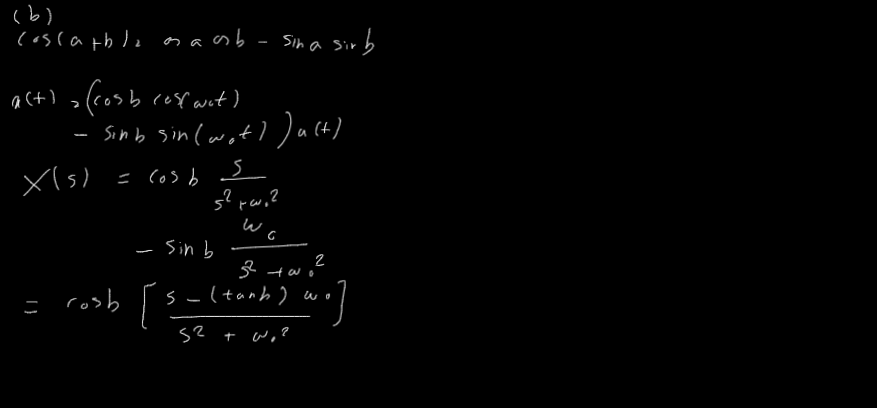 (b)
cos(a+b) = cos a cos b - sin a sin b
x(t) = (cos b cos(ω₀t)
- sin b sin(ω₀t)) u(t)
X(s) = cos b s/(s² + ω₀²)
- sin b ω₀/(s² + ω₀²)
= cos b [ (s - (tan b) ω₀)/(s² + ω₀²) ]